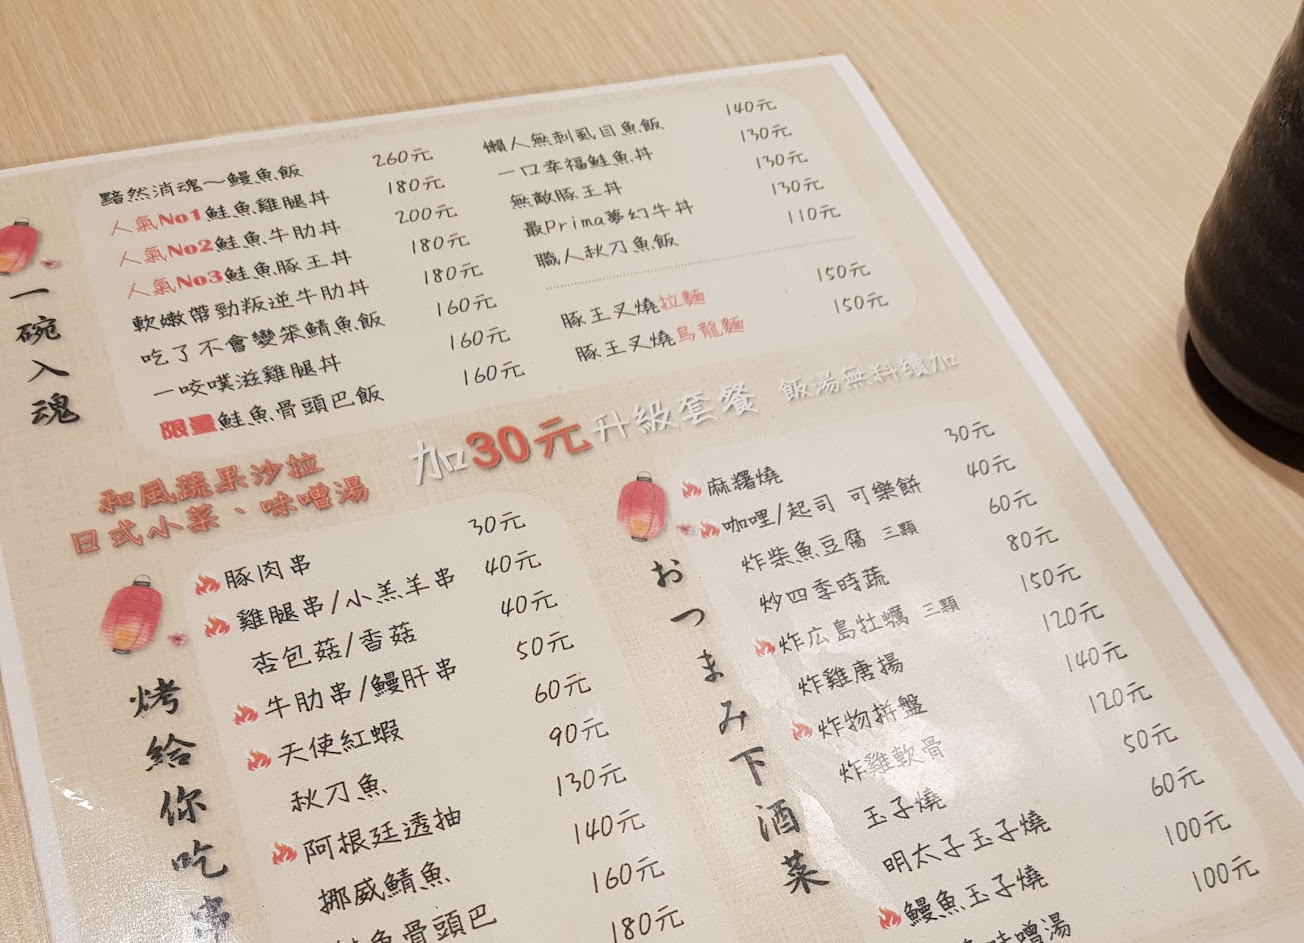 一碗入魂
黯然消魂～鰻魚飯 260元
人氣No1鮭魚雞腿丼 180元
人氣No2鮭魚牛肋丼 200元
人氣No3鮭魚豚王丼 180元
軟嫩帶勁叛逆牛肋丼 180元
吃了不會變笨鯖魚飯 160元
一咬噗滋雞腿丼 160元
限量鮭魚骨頭巴飯 160元
懶人無刺虱目魚飯 140元
一口幸福鮭魚丼 130元
無敵豚王丼 130元
最Prima夢幻牛丼 130元
職人秋刀魚飯 110元
豚王叉燒拉麵 150元
豚王叉燒烏龍麵 150元
和風蔬果沙拉
日式小菜、味噌湯
加30元升級套餐 飯湯無料續加
烤給你吃串
豚肉串 30元
雞腿串/小羔羊串 40元
杏包菇/香菇 40元
牛肋串/鰻肝串 50元
天使紅蝦 60元
秋刀魚 90元
阿根廷透抽 130元
挪威鯖魚 140元
魚骨頭巴 160元
180元
おつまみ下酒菜
麻糬燒 30元
咖哩/起司 可樂餅 40元
炸柴魚豆腐 三顆 60元
炒四季時蔬 80元
炸広島牡蠣 三顆 150元
炸雞唐揚 120元
炸物拼盤 140元
炸雞軟骨 120元
玉子燒 50元
明太子玉子燒 60元
鰻魚玉子燒 100元
味噌湯 100元